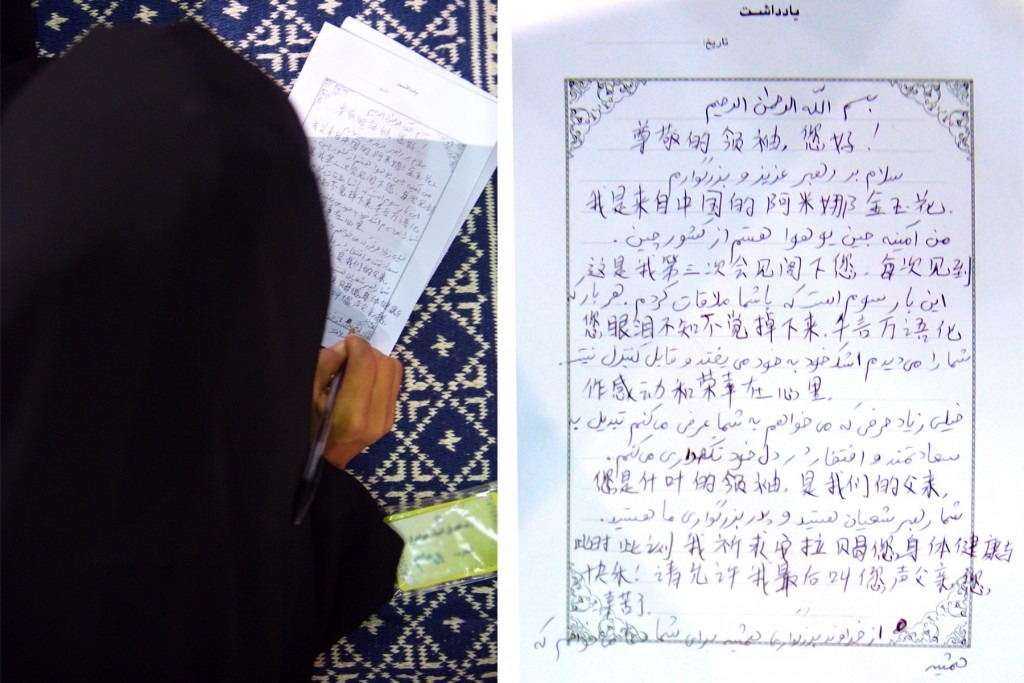 یادداشت
تاریخ:
بسم الله الرحمن الرحیم
尊敬的领袖，您好！
سلام بر رهبر عزیز و بزرگوارم
我是来自中国的阿米娜 金玉花.
من آمنه جین یو هوا هستم از کشور چین.
这是我第三次会见阁下您. 每次见到
این بار سوم است که با شما ملاقات کردم. هر بار که
您眼泪不知不觉掉下来. 千言万语化
شما را می‌دیدم اشک خود به خود می یفتد و قابل کنترل نیست.
作感动和荣幸在心里.
خیلی زیاد حرفی که می خواهم به شما عرض می کنم تبدیل به
سعادتمند و افتخار در دل خود نگهداری می‌کنم.
您是什叶的领袖. 是我们的父亲,
شما رهبر شعیان هستید و پدر بزرگواری ما هستید.
此时此刻我祈求安拉赐您身体健康与
快乐！请允许我最后叫您声父亲您,
辛苦了.
از خداوند بزرگواری همیشه برای شما می خواهم که
همیشه
یادداشت